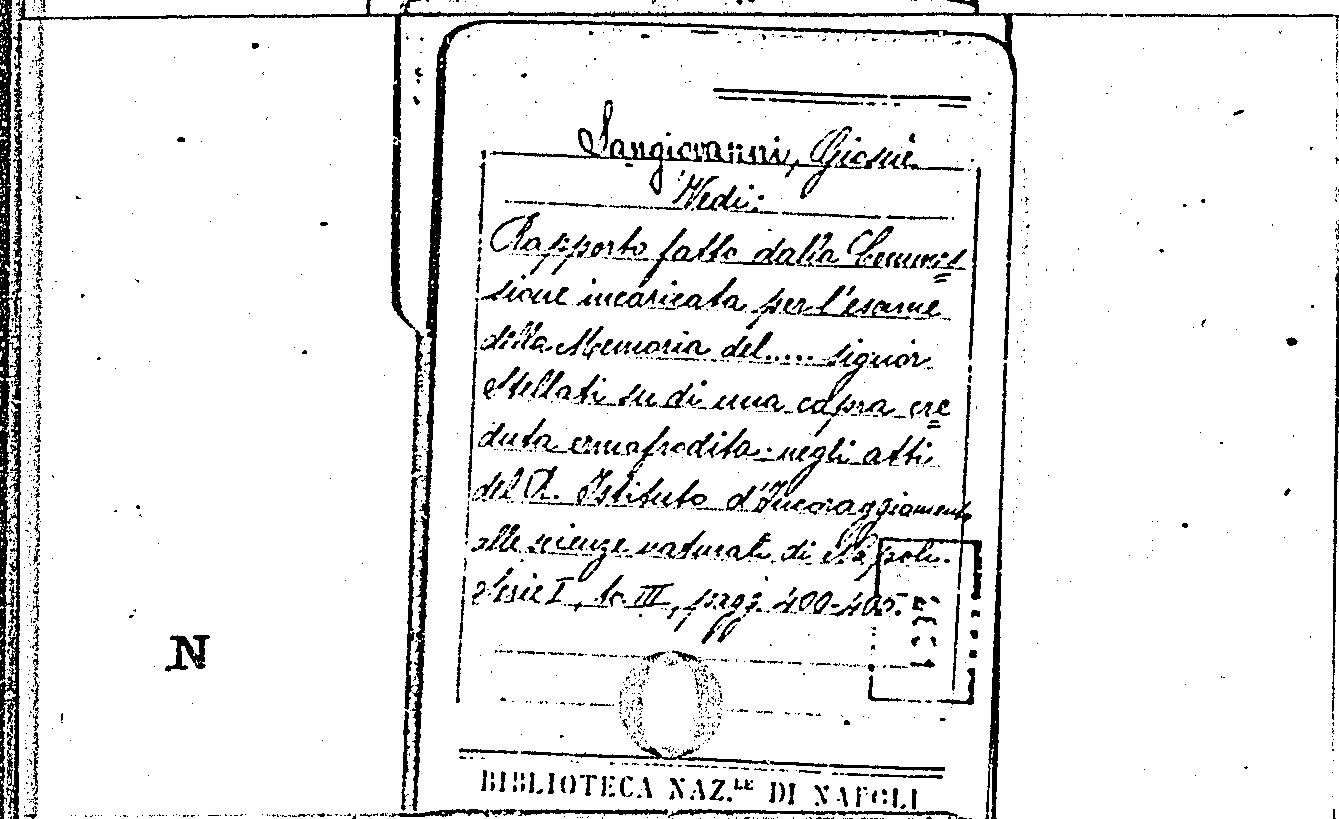 Sangiovanni, Giosuè
Vedi:
Rapporto fatto dalla Commis=
sione incaricata per l'esame
della Memoria del..... signor
Stellati su di una capra cre=
duta ermafrodita: negli atti
del R. Istituto d'Incoraggiamento
alle scienze naturali di Napoli.
Serie I, to. III, pagg. 400-405.
N
BIBLIOTECA NAZ.LE DI NAPOLI